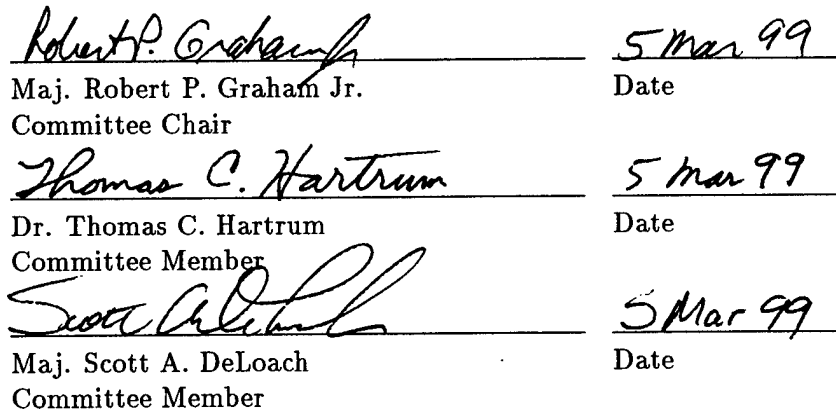 Robert P. Graham Jr 5 Mar 99
Maj. Robert P. Graham Jr. Date
Committee Chair
Thomas C. Hartrum 5 Mar 99
Dr. Thomas C. Hartrum Date
Committee Member
Scott A. DeLoach 5 Mar 99
Maj. Scott A. DeLoach Date
Committee Member